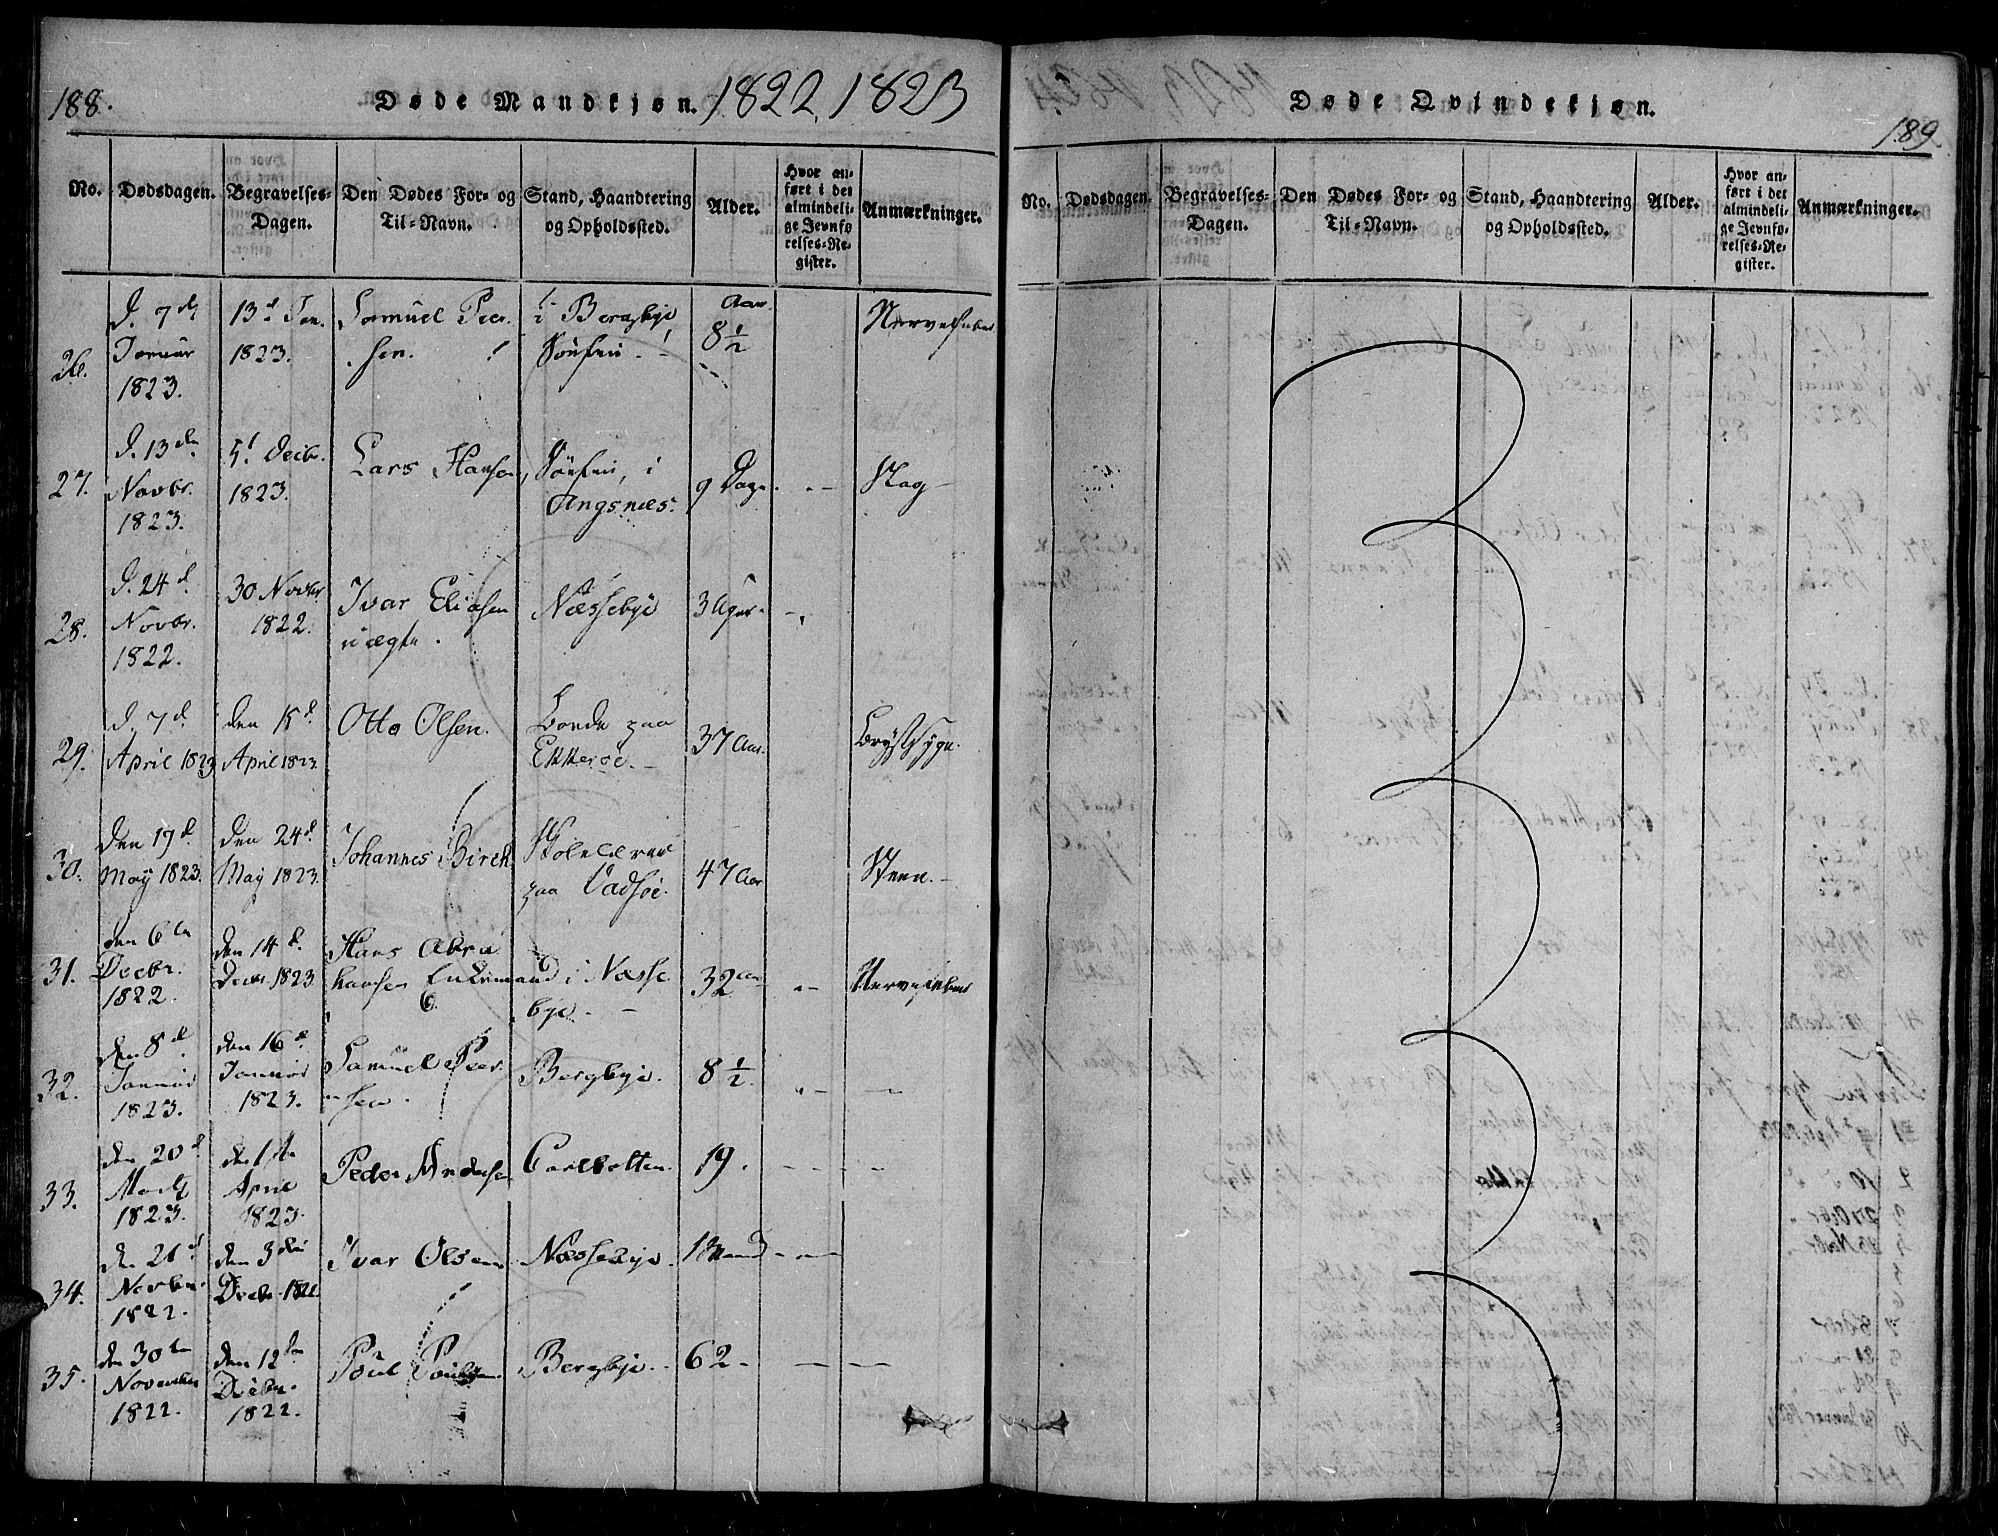 188.
Døde Mandkjøn. 1822, 1823
No. Dødsdagen. Begravelses-Dagen. Den Dødes For- og Til-Navn. Stand, Haandtering og Opholdssted. Alder. Hvor anført i det almindelige Jevnførelses-Register. Anmærkninger.
26.
D. 7d
Januar
1823.
13d Jan.
1823.
Samuel Peer-
sen.
i Bergebye
Søefin.
Aar
8 1/2
27.
D. 13den
Novbr.
1823.
5t Decbr.
1823.
Lars Hansen,
Søefin, i
Angsnæs.
9 Dage.
Slag
28.
D. 24d
Novbr.
1822.
30 Novbr
1822.
Ivar Eliasen
uægte.
Næssebye
3 Uger.
29.
D. 7d.
April 1823
den 15d.
April 1823.
Otto Olsen.
Bonde paa
Ekkerøe.
37 Aar.
Brystsyge.
30.
Den 17d
May 1823.
den 24d.
May 1823.
Johannes Birch
Skolelærer
paa Vadsøe.
47 Aar
Steen.
31.
den 6te
Decbr.
1822.
den 14d.
Decbr 1823
Hans Abra
hamsen Enkemand i Næsse
bye.
32 Aar
32.
den 8d.
Januar
1823.
den 16d.
Januar
1823.
Samuel Peer
sen.
Bergebye.
8 1/2.
33.
den 20d
Martz
1823.
den 1ste
April
1823.
Peder Andersen
Carlbotten.
19.
34.
den 21d
Novbr.
1822.
den 3die
Decbr. 1822
Ivar Olsen
Næssebye.
1 Maaned
35.
den 30te
November
1822.
den 12te
Decbr.
1822.
Poul Poulsen
Bergebye.
62
Døde Qvindekjøn.
189
No. Dødsdagen. Begravelses-Dagen. Den Dødes For- og Til-Navn. Stand, Haandtering og Opholdssted. Alder. Hvor anført i det almindelige Jevnførelses-Register. Anmærkninger.